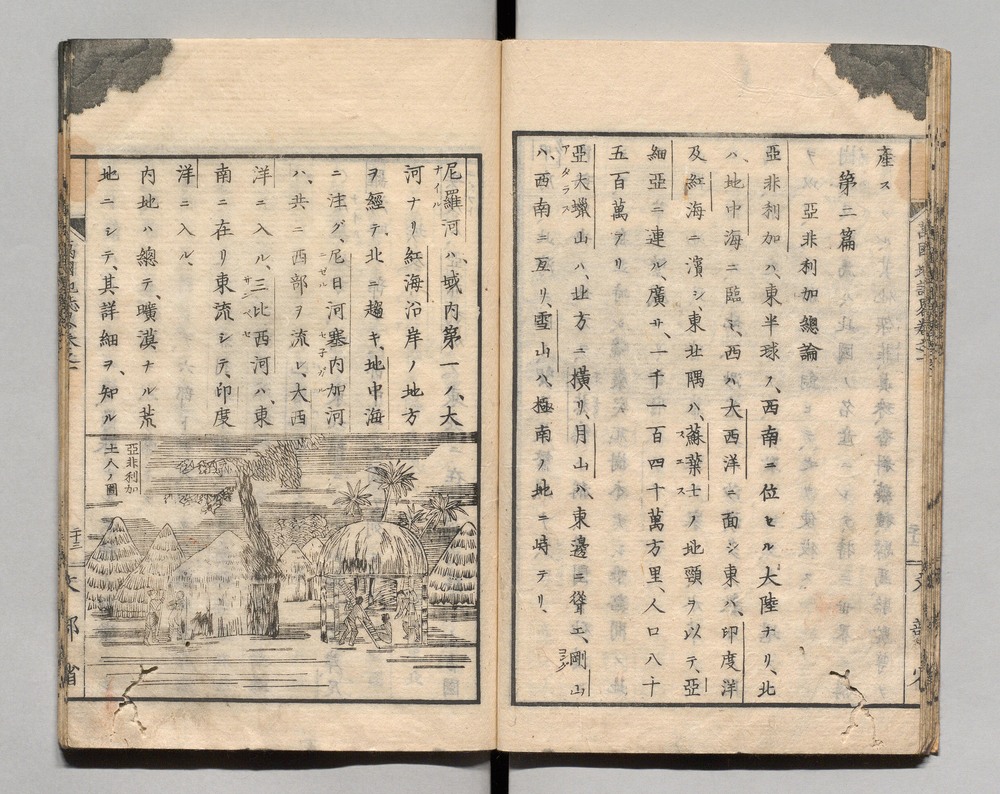 産ス
第二篇
亞非利加總論
亞非利加ハ、東半球ノ、西南ニ位セル大陸ナリ、北
ハ、地中海ニ臨ミ、西ハ、大西洋ニ面シ、東ハ、印度洋
及紅海ニ濱シ、東北隅ハ、蘇葉士ノ地頸ヲ以テ、亞
スエス
細亞ニ連ル、廣サ、一千一百四十萬方里、人口八千
五百萬アリ
亞大蠟山ハ、北方ニ横リ、月山ハ、東邊ニ聳エ、剛山
アタラス
コング
ハ、西南ニ亙リ、雪山ハ、極南ノ地ニ峙テリ、
文部省
尼羅河ハ、域内第一ノ、大
ナイル
河ナリ紅海沿岸ノ地方
ヲ經テ、北ニ趨キ、地中海
ニ注グ、尼日河塞内加河
ニゼル
セ子ガル
ハ、共ニ西部ヲ流レ、大西
洋ニ入ル、三比西河ハ、東
サンベセ
南ニ在リ東流シテ、印度
洋ニ入ル、
内地ハ總テ、曠漠ナル荒
地ニシテ、其詳細ヲ、知ル
亞非利加
土人ノ圖
文部省